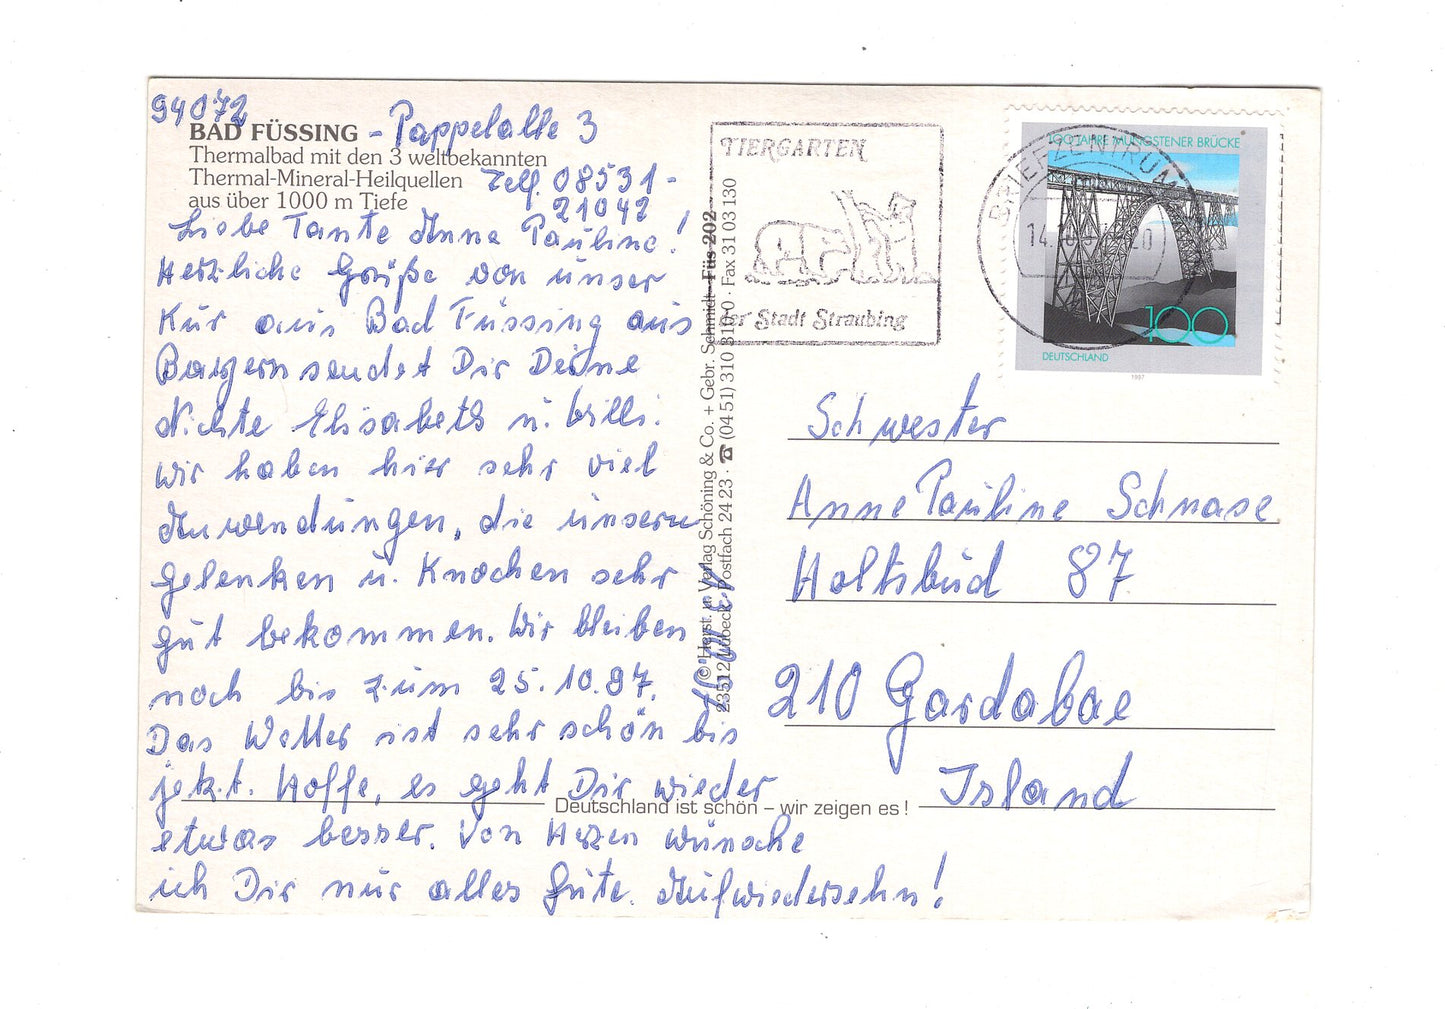 94072
BAD FÜSSING - Pappelalle 3
Thermalbad mit den 3 weltbekannten
Thermal-Mineral-Heilquellen
aus über 1000 m Tiefe
Telf. 08531-
21042
Liebe Tante Anna Pauline!
Herzliche Grüße von unser
Kur aus Bad Füssing aus
Bayern sendet Dir Deine
Nichte Elisabeth u. Willi.
Wir haben hier sehr viel
Anwendungen, die unsern
gelenken u. Knochen sehr
gut bekommen. Wir bleiben
noch bis zum 25.10.97.
Das Wetter ist sehr schön bis
jetzt. Hoffe, es geht Dir wieder
etwas besser. Von Herzen wünsche
ich Dir nur alles Gute. Aufwiedersehn!
© Herst. u. Verlag Schöning & Co. + Gebr. Schmidt Füs 202
23512 Lübeck · Postfach 24 23 · ☎ (04 51) 310 310-0 · Fax 31 03 130
TIERGARTEN
der Stadt Straubing
BRIEFZENTRUM
14.
100 JAHRE MÜNGSTENER BRÜCKE
100
DEUTSCHLAND
1997
Schwester
Anne Pauline Schnase
Holtsbúd 87
210 Gardabae
Island
Deutschland ist schön – wir zeigen es!